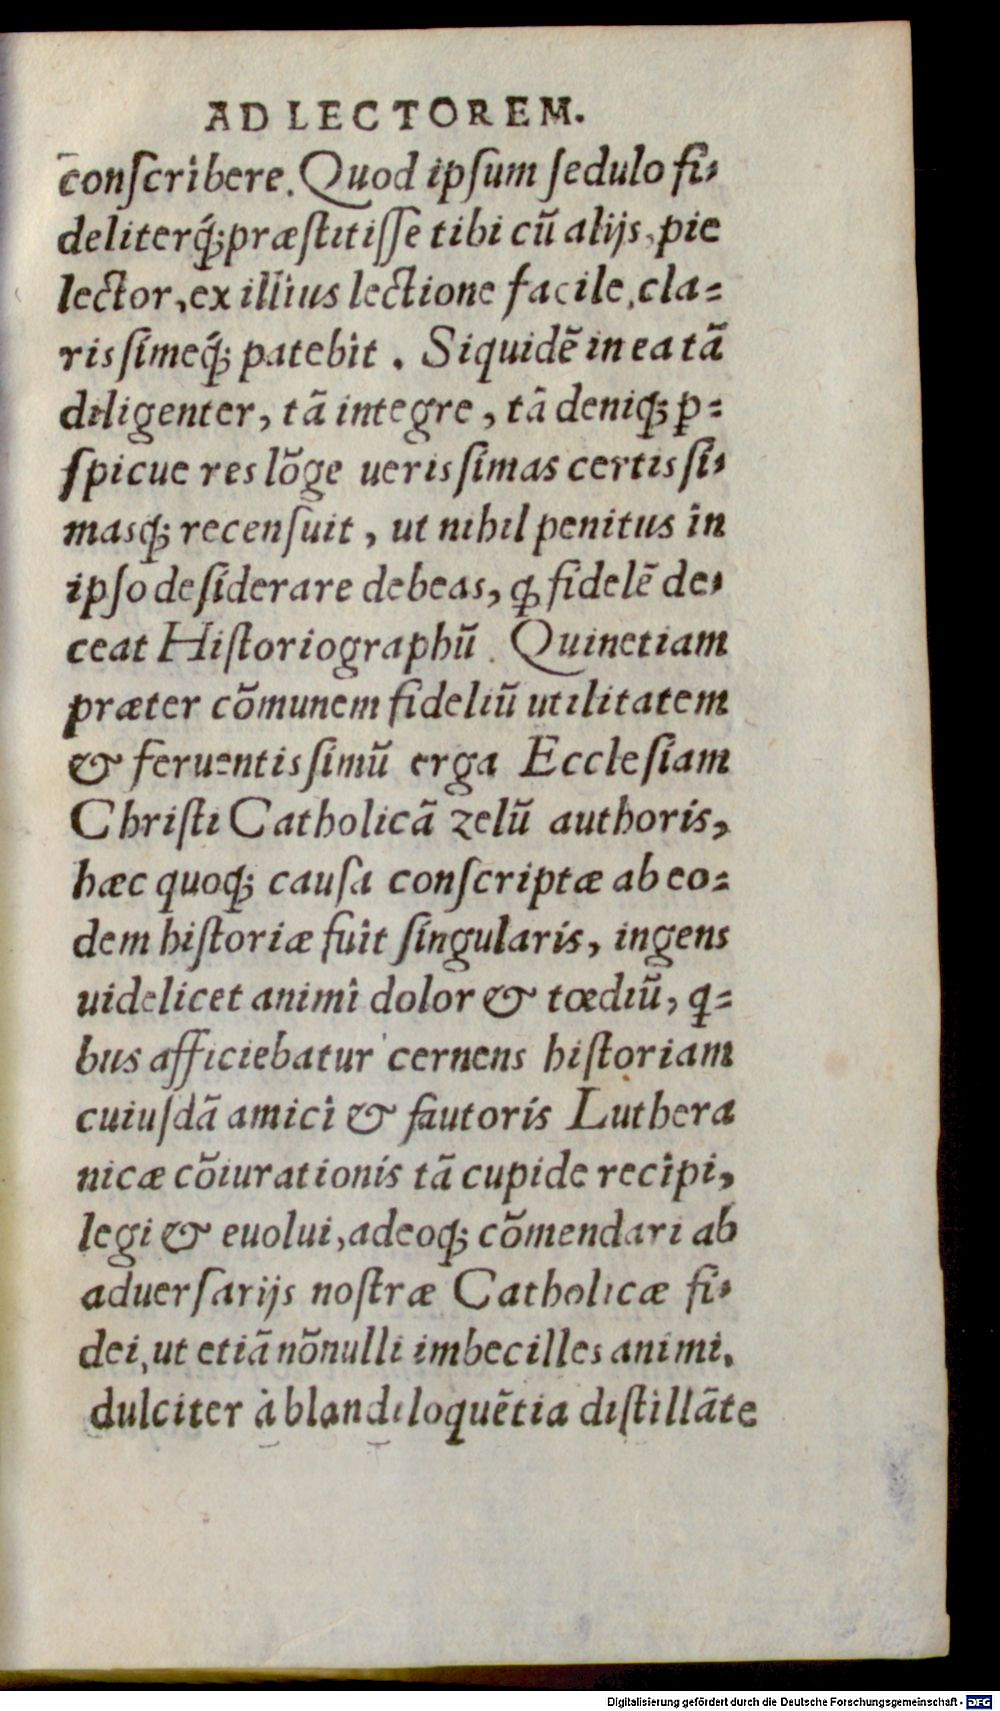 AD LECTOREM.
conſcribere. Quod ipſum ſedulo fi-
deliterq́;præſtitiſſe tibi cũ alijs, pie
lector, ex illius lectione facile, cla=
risſimeq́; patebit. Siquidẽ in ea tã
diligenter, tã integre, tã deniq; ꝑ=
ſpicue res lõge uerisſimas certisſi-
masq; recenſuit, ut nihil penitus in
ipſo deſiderare debeas, ꝙ fidelẽ de-
ceat Hiſtoriographũ. Quinetiam
præter cõmunem fideliũ utilitatem
& feruentisſimũ erga Eccleſiam
Chriſti Catholicã zelũ authoris,
hæc quoq; cauſa conſcriptæ ab eo=
dem hiſtoriæ fuit ſingularis, ingens
uidelicet animi dolor & tœdiũ, q=
bus afficiebatur cernens hiſtoriam
cuiuſdã amici & fautoris Luthera
nicæ cõiurationis tã cupide recipi,
legi & euolui, adeoq; cõmendari ab
aduerſarijs noſtræ Catholicæ fi-
dei, ut etiã nõnulli imbecilles animi,
dulciter à blandiloquẽtia diſtillãte
Digitalisierung gefördert durch die Deutsche Forschungsgemeinschaft - DFG